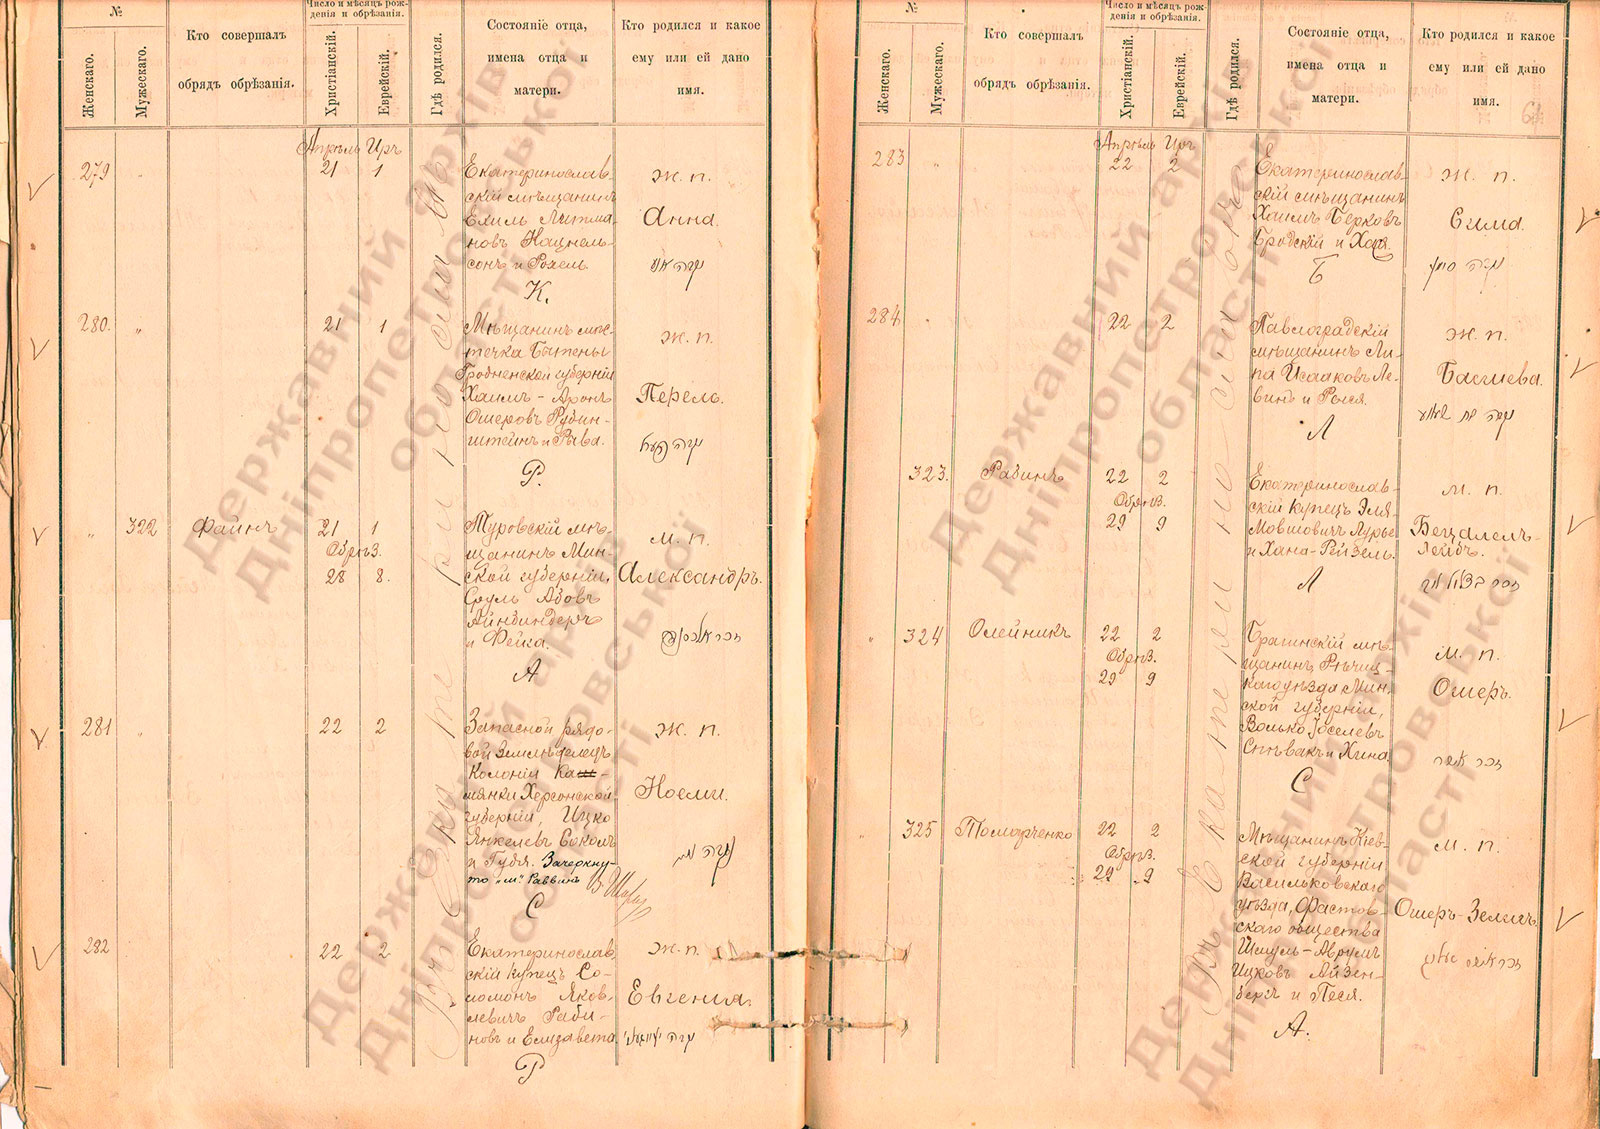 №
Женскаго.
Мужескаго.
Кто совершалъ
обрядъ обрѣзанія.
Число и мѣсяцъ рож-
денія и обрѣзанія.
Христіанскій.
Еврейскій.
Гдѣ родился.
Состояніе отца,
имена отца и
матери.
Кто родился и какое
ему или ей дано
имя.
Апрѣль Иръ
279 " 21 1
Екатеринослав-
скій мѣщанинъ
Ехиль Литма-
новъ Кацнель-
сонъ и Рохель
К.
ж. п.
Анна.
280. " 21 1
Мѣщанинъ мѣс-
течка Бытены
Гродненской губерніи
Хаимъ-Аронъ
Ошеровъ Рубин-
штейнъ и Рива.
Р.
ж. п.
Перель.
" 322 Файнъ 21 1
Обрѣз.
28 8.
Туровскій мѣ-
щанинъ Мин-
ской губерніи,
Сруль Абовъ
Айнбиндеръ
и Фейга.
А
м. п.
Александръ.
281 " 22 2
Запасной рядо-
вой Земледѣлецъ
Колоніи Кам-
мянки Херсонской
губерніи, Ицко
Янкелевъ Соколъ
и Гудя. Зачеркну-
то "м" Раввинъ
С
ж. п.
Ноеми.
282 22 2
Екатеринослав-
скій купецъ Со-
ломонъ Яков-
левичъ Раби-
новъ и Елизавета
Р
ж. п.
Евгенія.
Въ Екатеринославѣ
№
Женскаго.
Мужескаго.
Кто совершалъ
обрядъ обрѣзанія.
Число и мѣсяцъ рож-
денія и обрѣзанія.
Христіанскій.
Еврейскій.
Гдѣ родился.
Состояніе отца,
имена отца и
матери.
Кто родился и какое
ему или ей дано
имя.
64
Апрѣль Иръ
283 " 22 2
Екатеринослав-
скій мѣщанинъ
Хаимъ Берковъ
Бродскій и Хая.
Б
ж. п.
Сима.
284 " 22 2
Павлоградскій
мѣщанинъ Ли-
па Исааковъ Ле-
винъ и Рися.
Л
ж. п.
Басшева.
323. Рабинъ 22 2
Обрѣз.
29 9
Екатеринослав-
скій купецъ Эля
Мовшовичъ Лурье
и Хана-Рейзель.
Л
м. п.
Бецалель-
Лейбъ.
" 324 Олейникъ 22 2
Обрѣз.
29 9
Брагинскій мѣ-
щанинъ Рѣчиц-
каго уѣзда Мин-
ской губерніи,
Волько Іоселевъ
Спѣвакъ и Хина.
С
м. п.
Ошеръ.
" 325 Томарченко 22 2
Обрѣз.
29 9
Мѣщанинъ Кіев-
ской губерніи
Васильковскаго
уѣзда, Фастов-
скаго общества
Шмуль-Аврумъ
Ицковъ Айзен-
бергъ и Песя.
А.
м. п.
Ошеръ-Зелигъ.
Въ Екатеринославѣ
Державний архів
Дніпропетровської
області